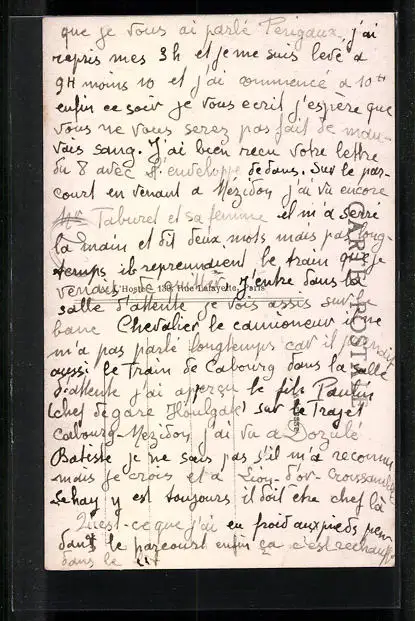 que je vous ai parlé Perigaux, j'ai
repris mes 3h et je me suis levé à
9H moins 10 et j'ai commencé a 10H
enfin ce soir je vous ecrit j'espere que
vous ne vous serez pas fait de mau-
vais sang. J'ai bien recu votre lettre
du 8 avec l'enveloppe dedans. Sur le par-
court en venant a Mézidon j'ai vu encore
Mr Taburet et sa femme il m'a serré
la main et dit deux mots mais pas long-
temps ils reprennaient le train que je
venais de J'entre dans la
salle d'attente je vois assis sur le
banc Chevalier le camioneur il ne
m'a pas parlé longtemps car il prenait
aussi le train de Cabourg dans la salle
d'attente j'ai aperçu le fils Paulin
(chef de gare Houlgate) sur le Trajet
Cabourg-Mezidon j'ai vu a Dozulé
Batisse je ne sais pas s'il m'a reconnu
mais je crois et a Lion-d'or-Croissanville
Lehay y est toujours il doit etre chef là
Qu'est-ce que j'ai eu froid aux pieds
dans le parcourt enfin ça c'est rechauffé
dans le lit
CARTE POSTALE
L'Hoste, 139, Rue Lafayette, Paris